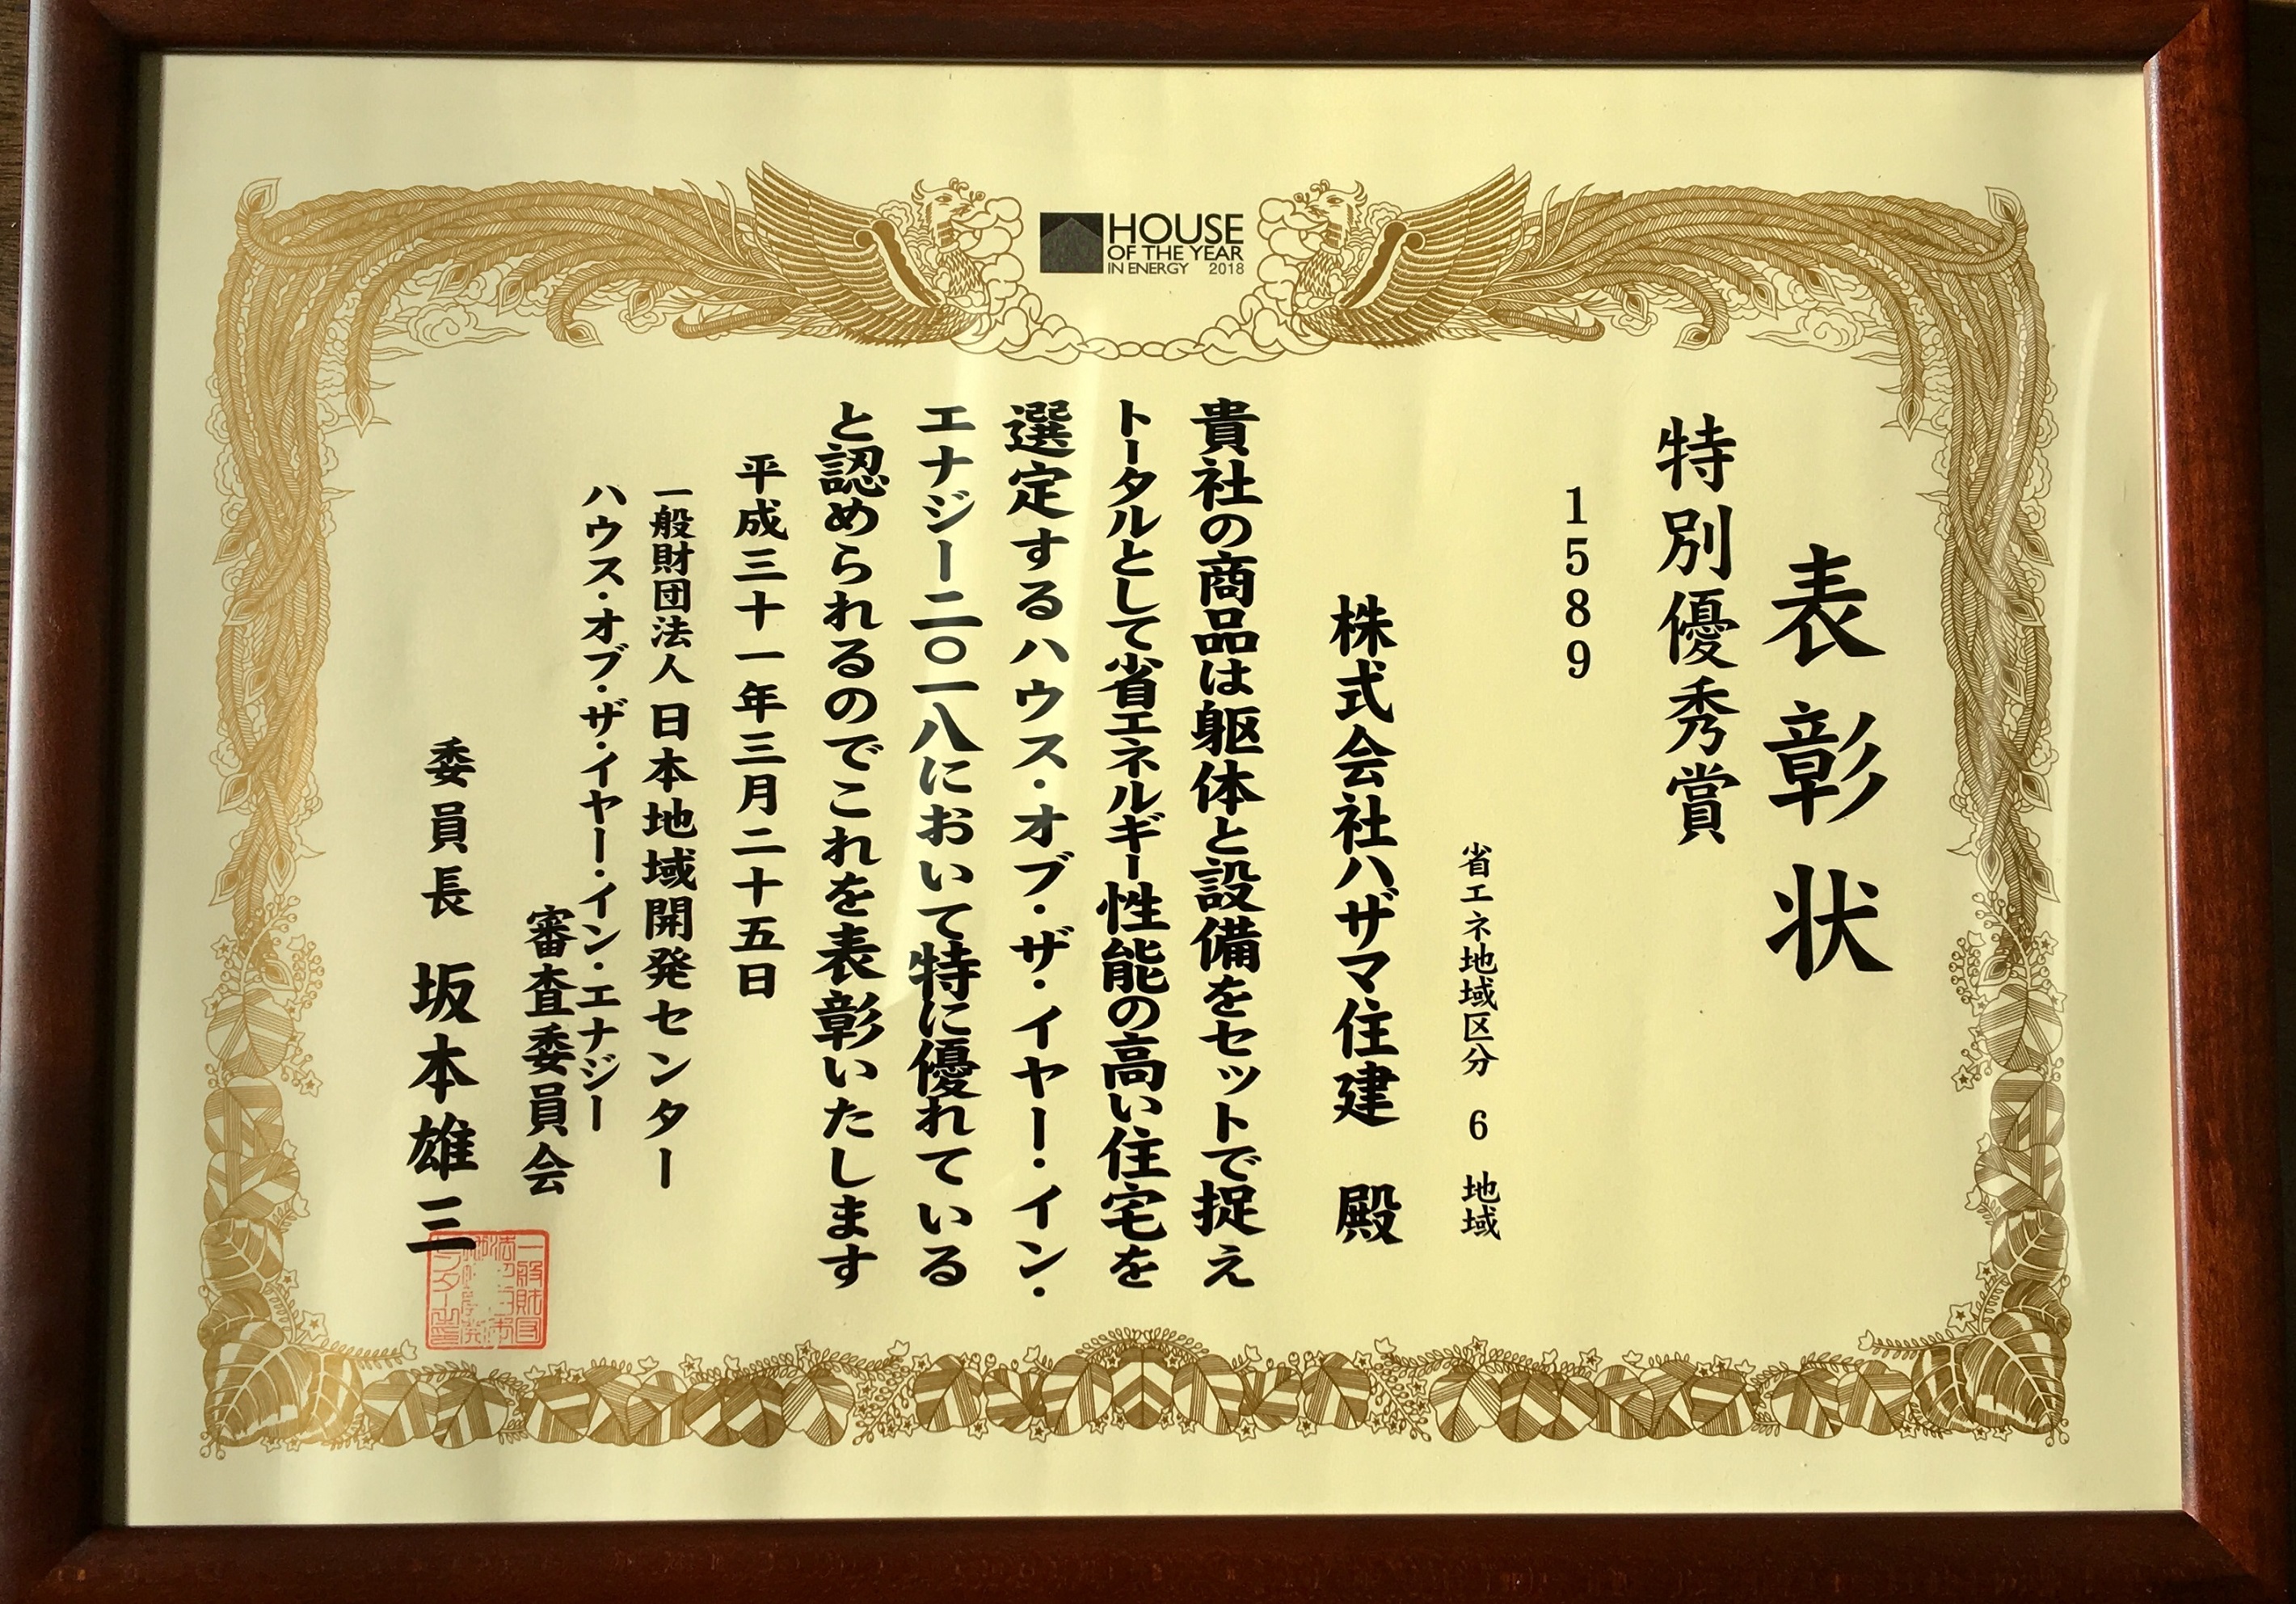 HOUSE
OF THE YEAR
IN ENERGY 2018
表彰状
特別優秀賞
1589
省エネ地域区分 6 地域
株式会社ハザマ住建 殿
貴社の商品は躯体と設備をセットで捉え
トータルとして省エネルギー性能の高い住宅を
選定するハウス・オブ・ザ・イヤー・イン・
エナジー二〇一八において特に優れている
と認められるのでこれを表彰いたします
平成三十一年三月二十五日
一般財団法人 日本地域開発センター
ハウス・オブ・ザ・イヤー・イン・エナジー
審査委員会
委員長 坂本雄三